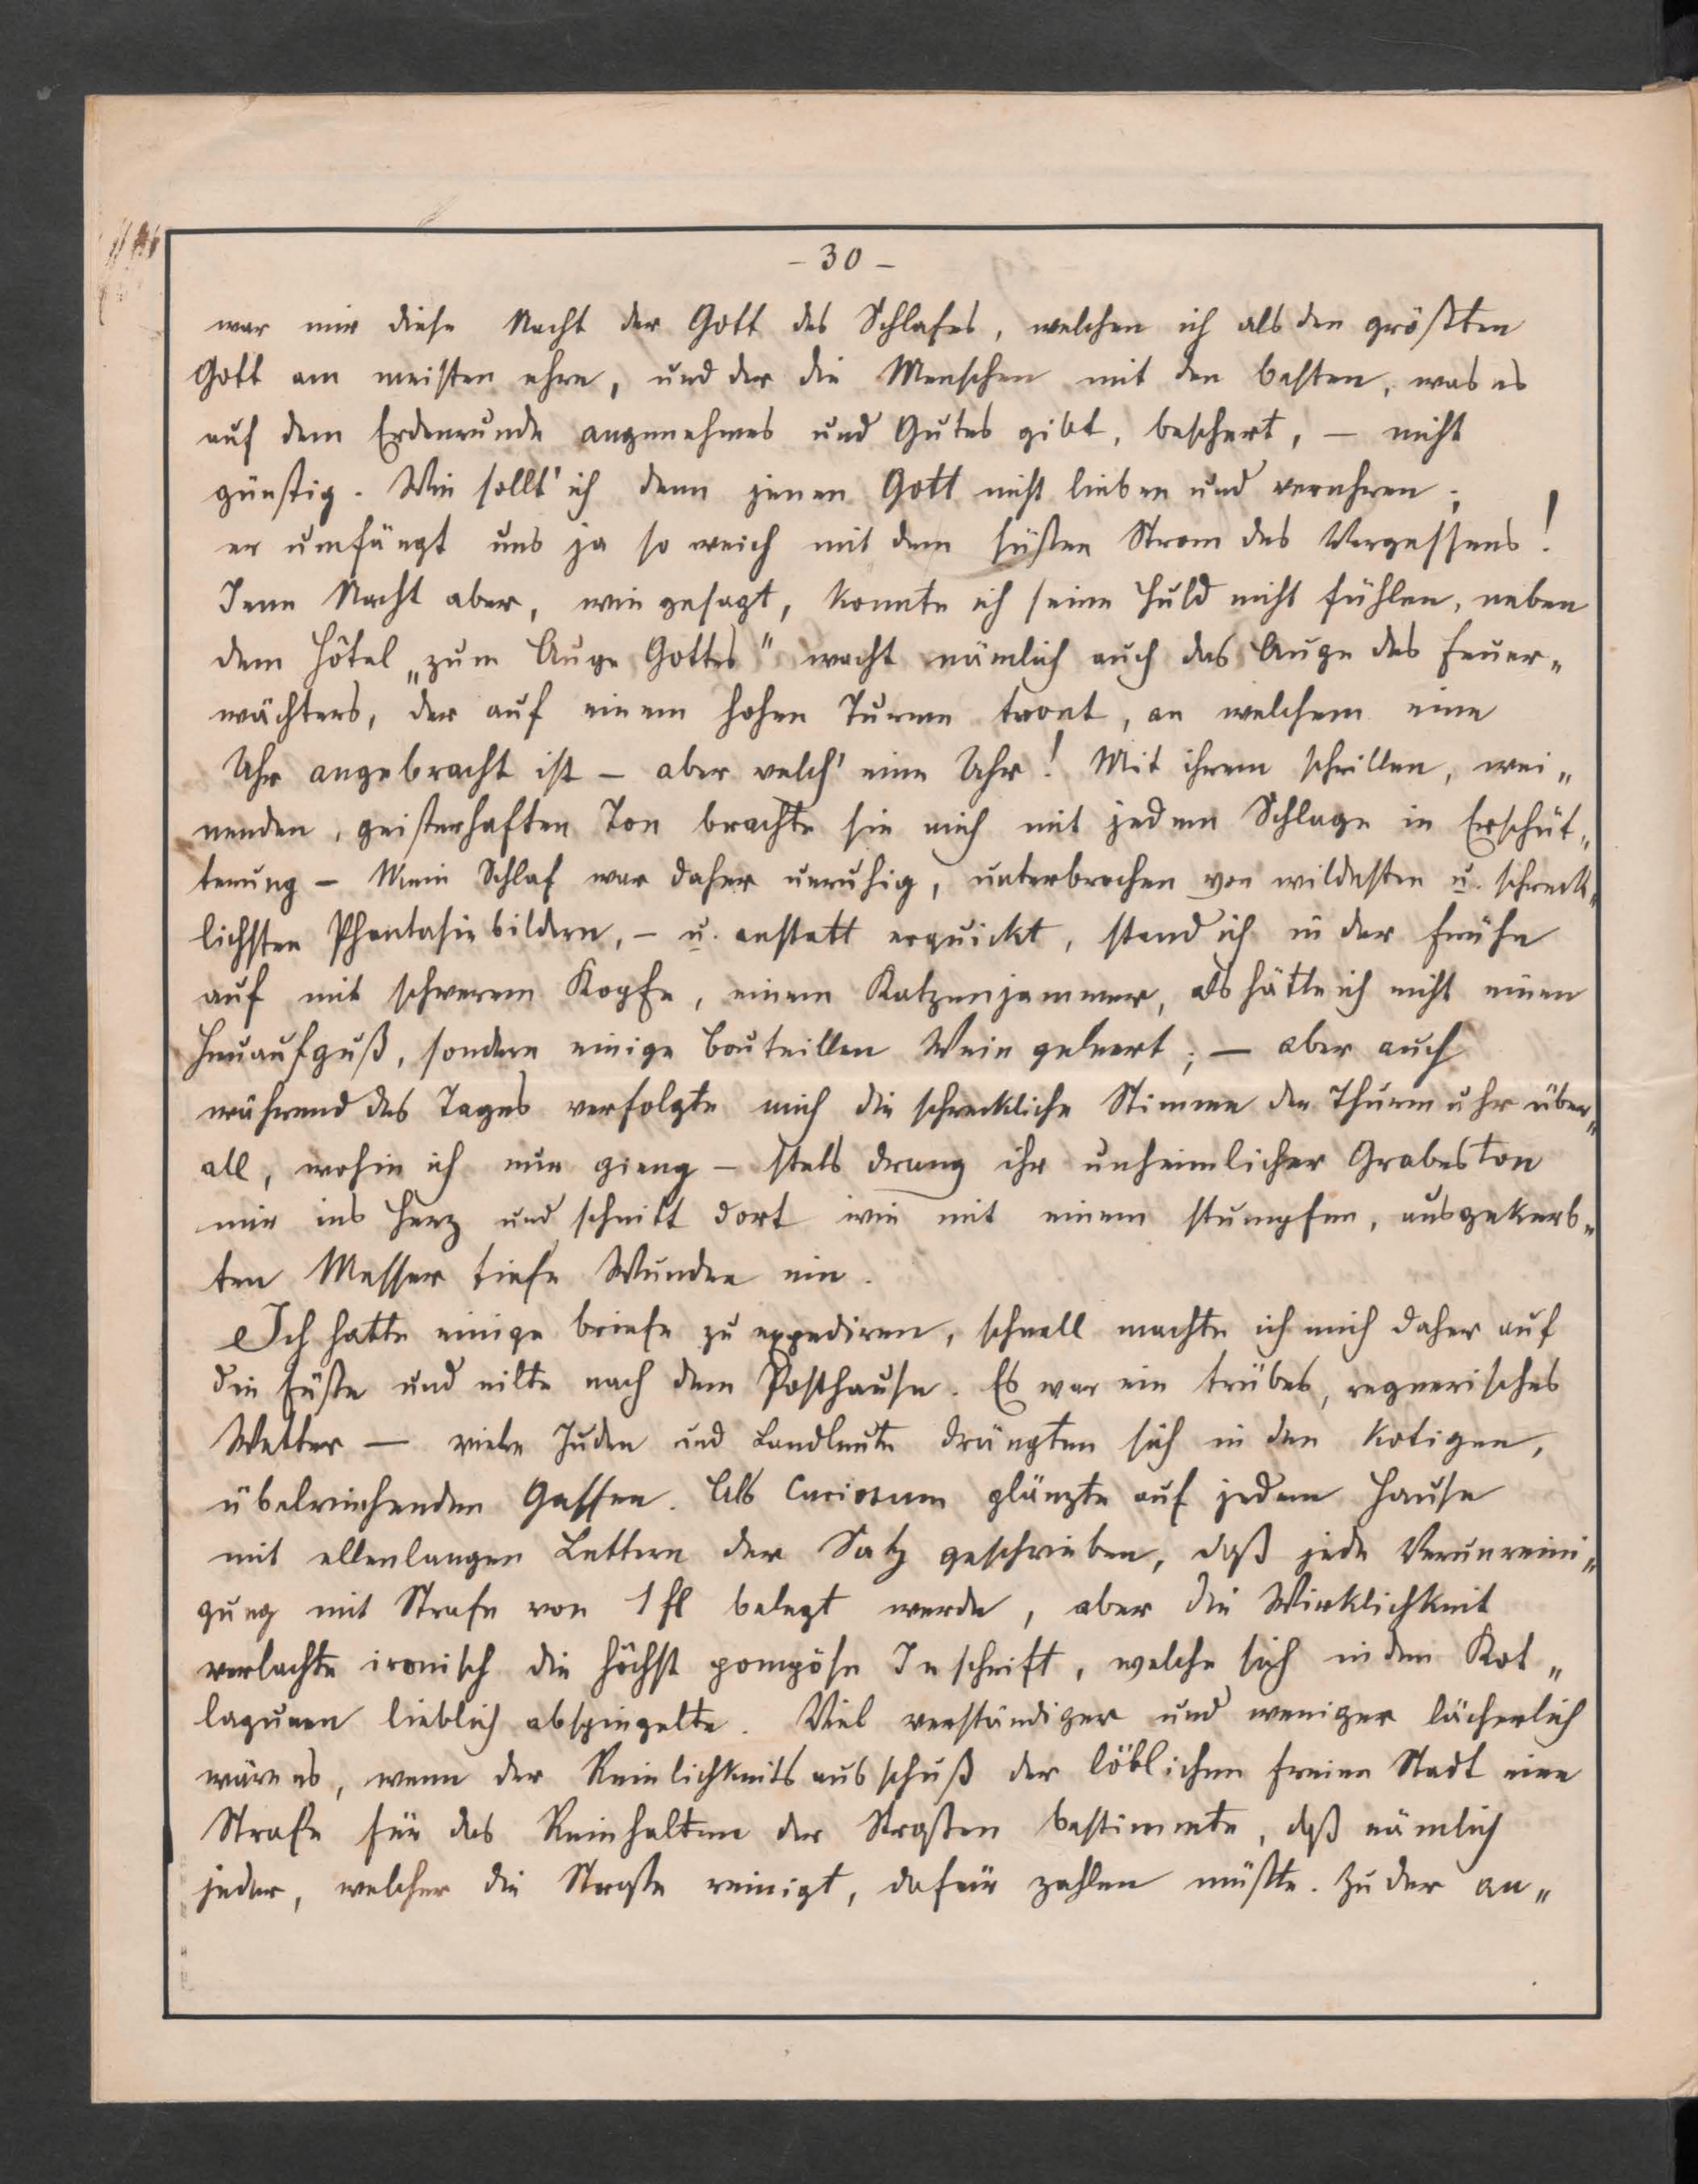 - 30 -
war mir diese Nacht der Gott des Schlafes, welchen ich als den größten
Gott am meisten ehre, und der die Menschen mit den besten, was es
auf dem Erdenrunde angenehmes und Gutes gibt, beschert, — nicht
günstig. Wie sollt' ich denn jenen Gott nicht lieben und verehren;
er umfängt uns ja so weich mit dem süßen Strom des Vergessens!
Jene Nacht aber, wie gesagt, konnte ich seine Huld nicht fühlen, neben
dem Hôtel „zum Auge Gottes" wacht nämlich auch das Auge des Feuer„
wächters, der auf einem hohen Turme tront, an welchem eine
Uhr angebracht ist — aber welch' eine Uhr! Mit ihrem schrillen, wei„
nenden, geisterhaften Ton brachte sie mich mit jedem Schlage in Erschüt„
terung — Mein Schlaf war daher unruhig, unterbrochen von wildesten u. schreck„
lichsten Phantasiebildern, — u. anstatt erquickt, stand ich in der Frühe
auf mit schwerem Kopfe, einem Katzenjammer, als hätte ich nicht einen
Heuaufguß, sondern einige Bouteillen Wein geleert; — aber auch
während des Tages verfolgte mich die schreckliche Stimme der Thurmuhr über„
all, wohin ich nur gieng — stets drang ihr unheimlicher Grabeston
mir ins Herz und schnitt dort wie mit einem stumpfen, ausgekerb„
ten Messer tiefe Wunden ein.
Ich hatte einige Briefe zu expediren, schnell machte ich mich daher auf
die Füße und eilte nach dem Posthause. Es war ein trübes, regnerisches
Wetter — viele Juden und Landleute drängten sich in den kotigen,
übelriechenden Gassen. Als Curiosum glänzte auf jedem Hause
mit ellenlangen Lettern der Satz geschrieben, daß jede Verunreini„
gung mit Strafe von 1 fl belegt werde, aber die Wirklichkeit
verlachte ironisch die höchst pompöse Inschrift, welche sich in den Kot„
lagunen lieblich abspiegelte. Viel verständiger und weniger lächerlich
wäre es, wenn der Reinlichkeitsausschuß der löblichen freien Stadt eine
Strafe für das Reinhalten der Straßen bestimmte, daß nämlich
jeder, welcher die Straße reinigt, dafür zahlen müßte. Zu der an„